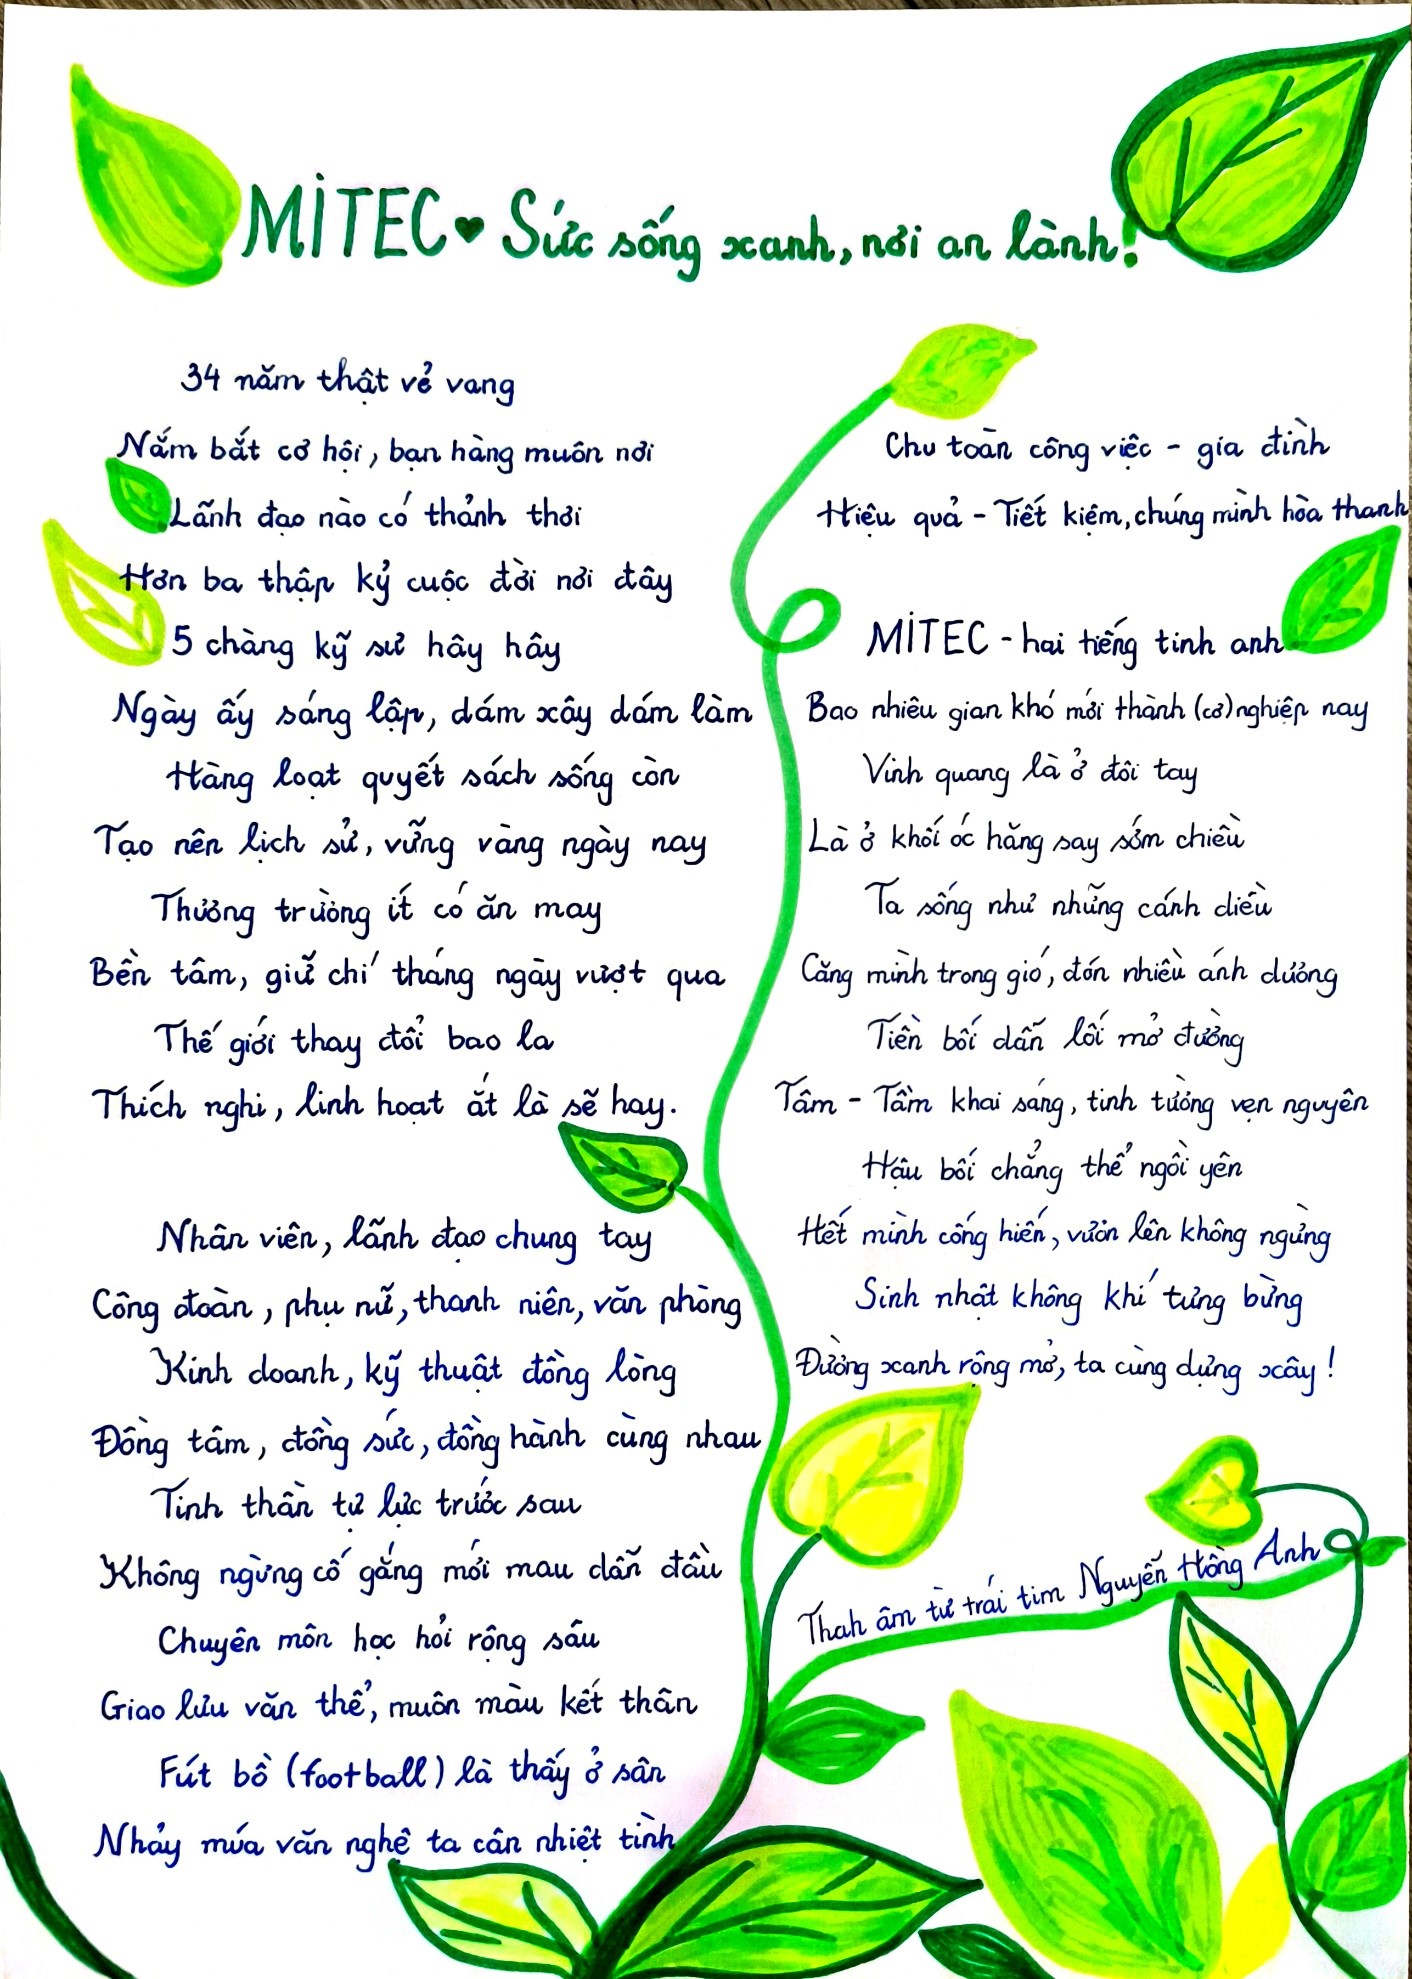 MITEC ♥ Sức sống xanh, nơi an lành!
34 năm thật vẻ vang
Nắm bắt cơ hội, bạn hàng muôn nơi
Lãnh đạo nào có thảnh thơi
Hơn ba thập kỷ cuộc đời nơi đây
5 chàng kỹ sư hây hây
Ngày ấy sáng lập, dám xây dám làm
Hàng loạt quyết sách sống còn
Tạo nên lịch sử, vững vàng ngày nay
Thương trường ít có ăn may
Bền tâm, giữ chí tháng ngày vượt qua
Thế giới thay đổi bao la
Thích nghi, linh hoạt ắt là sẽ hay.
Nhân viên, lãnh đạo chung tay
Công đoàn, phụ nữ, thanh niên, văn phòng
Kinh doanh, kỹ thuật đồng lòng
Đồng tâm, đồng sức, đồng hành cùng nhau
Tinh thần tự lực trước sau
Không ngừng cố gắng mới mau dẫn đầu
Chuyên môn học hỏi rộng sâu
Giao lưu văn thể, muôn màu kết thân
Fút bồ (football) là thấy ở sân
Nhảy múa văn nghệ ta cân nhiệt tình
Chu toàn công việc - gia đình
Hiệu quả - Tiết kiệm, chúng mình hòa thanh
MITEC - hai tiếng tinh anh
Bao nhiêu gian khó mới thành (cơ) nghiệp nay
Vinh quang là ở đôi tay
Là ở khối óc hăng say sớm chiều
Ta sống như những cánh diều
Căng mình trong gió, đón nhiều ánh dương
Tiền bối dẫn lối mở đường
Tâm - Tầm khai sáng, tinh tường vẹn nguyên
Hậu bối chẳng thể ngồi yên
Hết mình cống hiến, vươn lên không ngừng
Sinh nhật không khí tưng bừng
Đường xanh rộng mở, ta cùng dựng xây!
Thah âm từ trái tim Nguyễn Hồng Anh